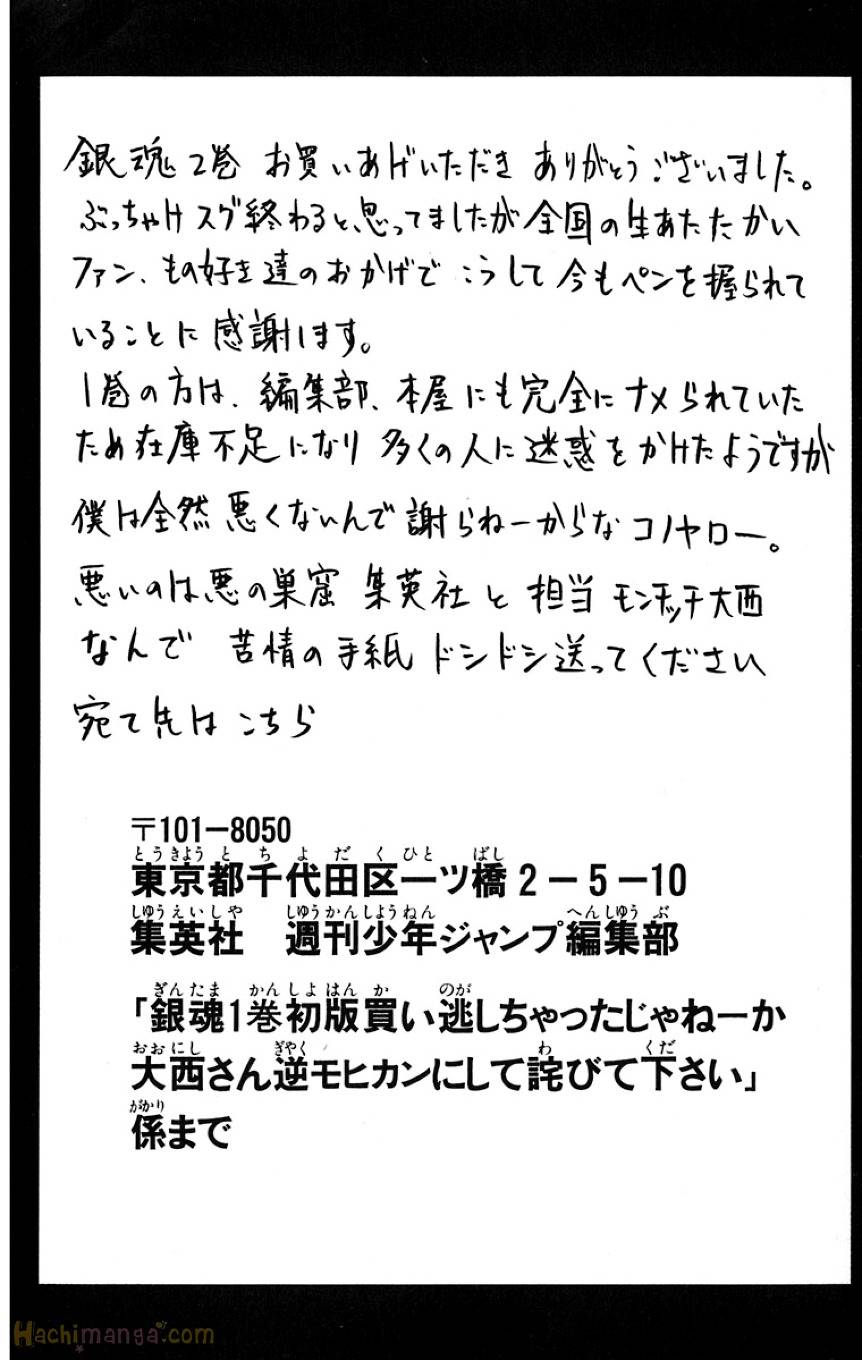 銀魂2巻 お買いあげいただき ありがとうございました。
ぶっちゃけスグ終わると思ってましたが全国の生あたたかい
ファン、もの好き達のおかげで こうして今もペンを握られて
いることに感謝します。
1巻の方は、編集部、本屋にも完全にナメられていた
ため在庫不足になり多くの人に迷惑をかけたようですが
僕は全然悪くないんで謝らねーからなコノヤロー。
悪いのは悪の巣窟 集英社と担当モンチッチ大西
なんで 苦情の手紙 ドシドシ送ってください
宛て先は こちら
〒101−8050
とうきょうとちよだくひとばし
東京都千代田区一ツ橋2−5−10
しゅうえいしゃ しゅうかんしょうねん へんしゅうぶ
集英社 週刊少年ジャンプ編集部
ぎんたま かんしょはんか のが
「銀魂1巻初版買い逃しちゃったじゃねーか
おおにし ぎゃく わ くだ
大西さん逆モヒカンにして詫びて下さい」
がかり
係まで
Hachimanga.com